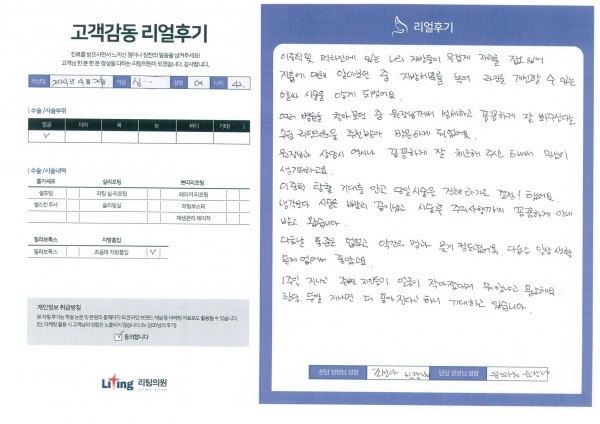 고객감동 리얼후기
진료를 받으시면서 느끼신 점이나 칭찬의 말씀을 남겨주세요!
고객님 한 분 한 분 정성을 다하는 리팅의원이 되겠습니다. 감사합니다.
작성일 2024년 4월 이름 성별 여 나이 42
수술 / 시술부위
얼굴 이마 목 눈 바디 기타( )
✓
수술 / 시술내역
줄기세포 실리프팅 밴디리프팅
셀프팅 리팅 실 리프팅 레이저 리프팅
셀스킨 주사 슬리핑실 리팅부스터
재생관리 레이저
필러보톡스 지방흡입
필러보톡스 초음파 지방흡입 ✓
개인정보 취급방침
본 자필 후기는 학술 논문 및 본원의 홈페이지 외 온라인 브랜드 채널 등 마케팅 자료로도 활용될 수 있습니다.
(단, 마케팅 활용 시 고객님의 성함은 노출되지 않습니다. Ex. 김OO님의 후기)
✓ 동의합니다
Liting 리팅의원
리얼후기
이중턱 및 턱라인에 있는 나의 지방들이 두껍게 자리를 잡고 있어
지흡에 대해 알아보던 중 지방세포를 녹여 라인을 개선할 수 있는
시술을 알게 되었어요.
여러 병원을 찾아보던 중 원장님께서 섬세하고 꼼꼼하게 잘 봐주신다는
리팅의원을 추천받아 방문하게 되었어요.
원장님과 상담시 역시나 꼼꼼하게 잘 체크해 주신 믿음이
생기더라고요.
이중턱 탈출 기대를 안고 당일시술로 진행하기로 결정! 했어요.
생각보다 시술은 빨리 끝이났고 시술후 주의사항까지 꼼꼼하게 안내
받고 왔습니다.
다음날 통증은 없었고 약간의 멍과 붓기 정도였어요, 다음날 일상 생활
문제 없어서 좋았고요.
1주일 지나고 주변 지인들이 얼굴이 작아졌다며 뭐했냐고 물어봐요.
한달 두달 지나면 더 좋아진다고 하니 기대하고 있습니다.
상담 실장님 성함 담당 원장님 성함